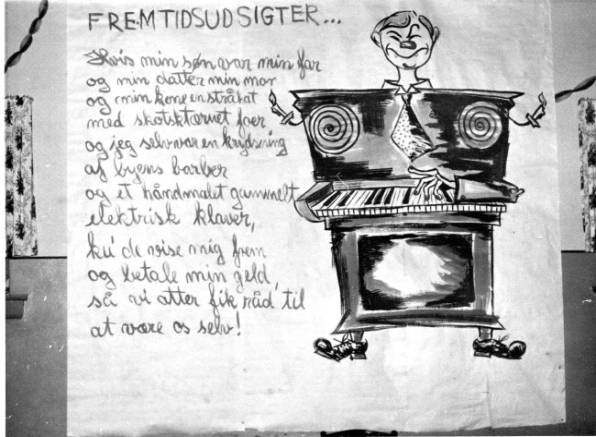 FREMTIDSUDSIGTER...
Hvis min søn var min far
og min datter min mor
og min kone en stråhat
med skotskternet fjer
og jeg selv var en krydsning
af byens barber
og et håndmalet gammelt
elektrisk klaver,
ku' de vise mig frem
og betale min gæld,
så vi atter fik råd til
at være os selv!